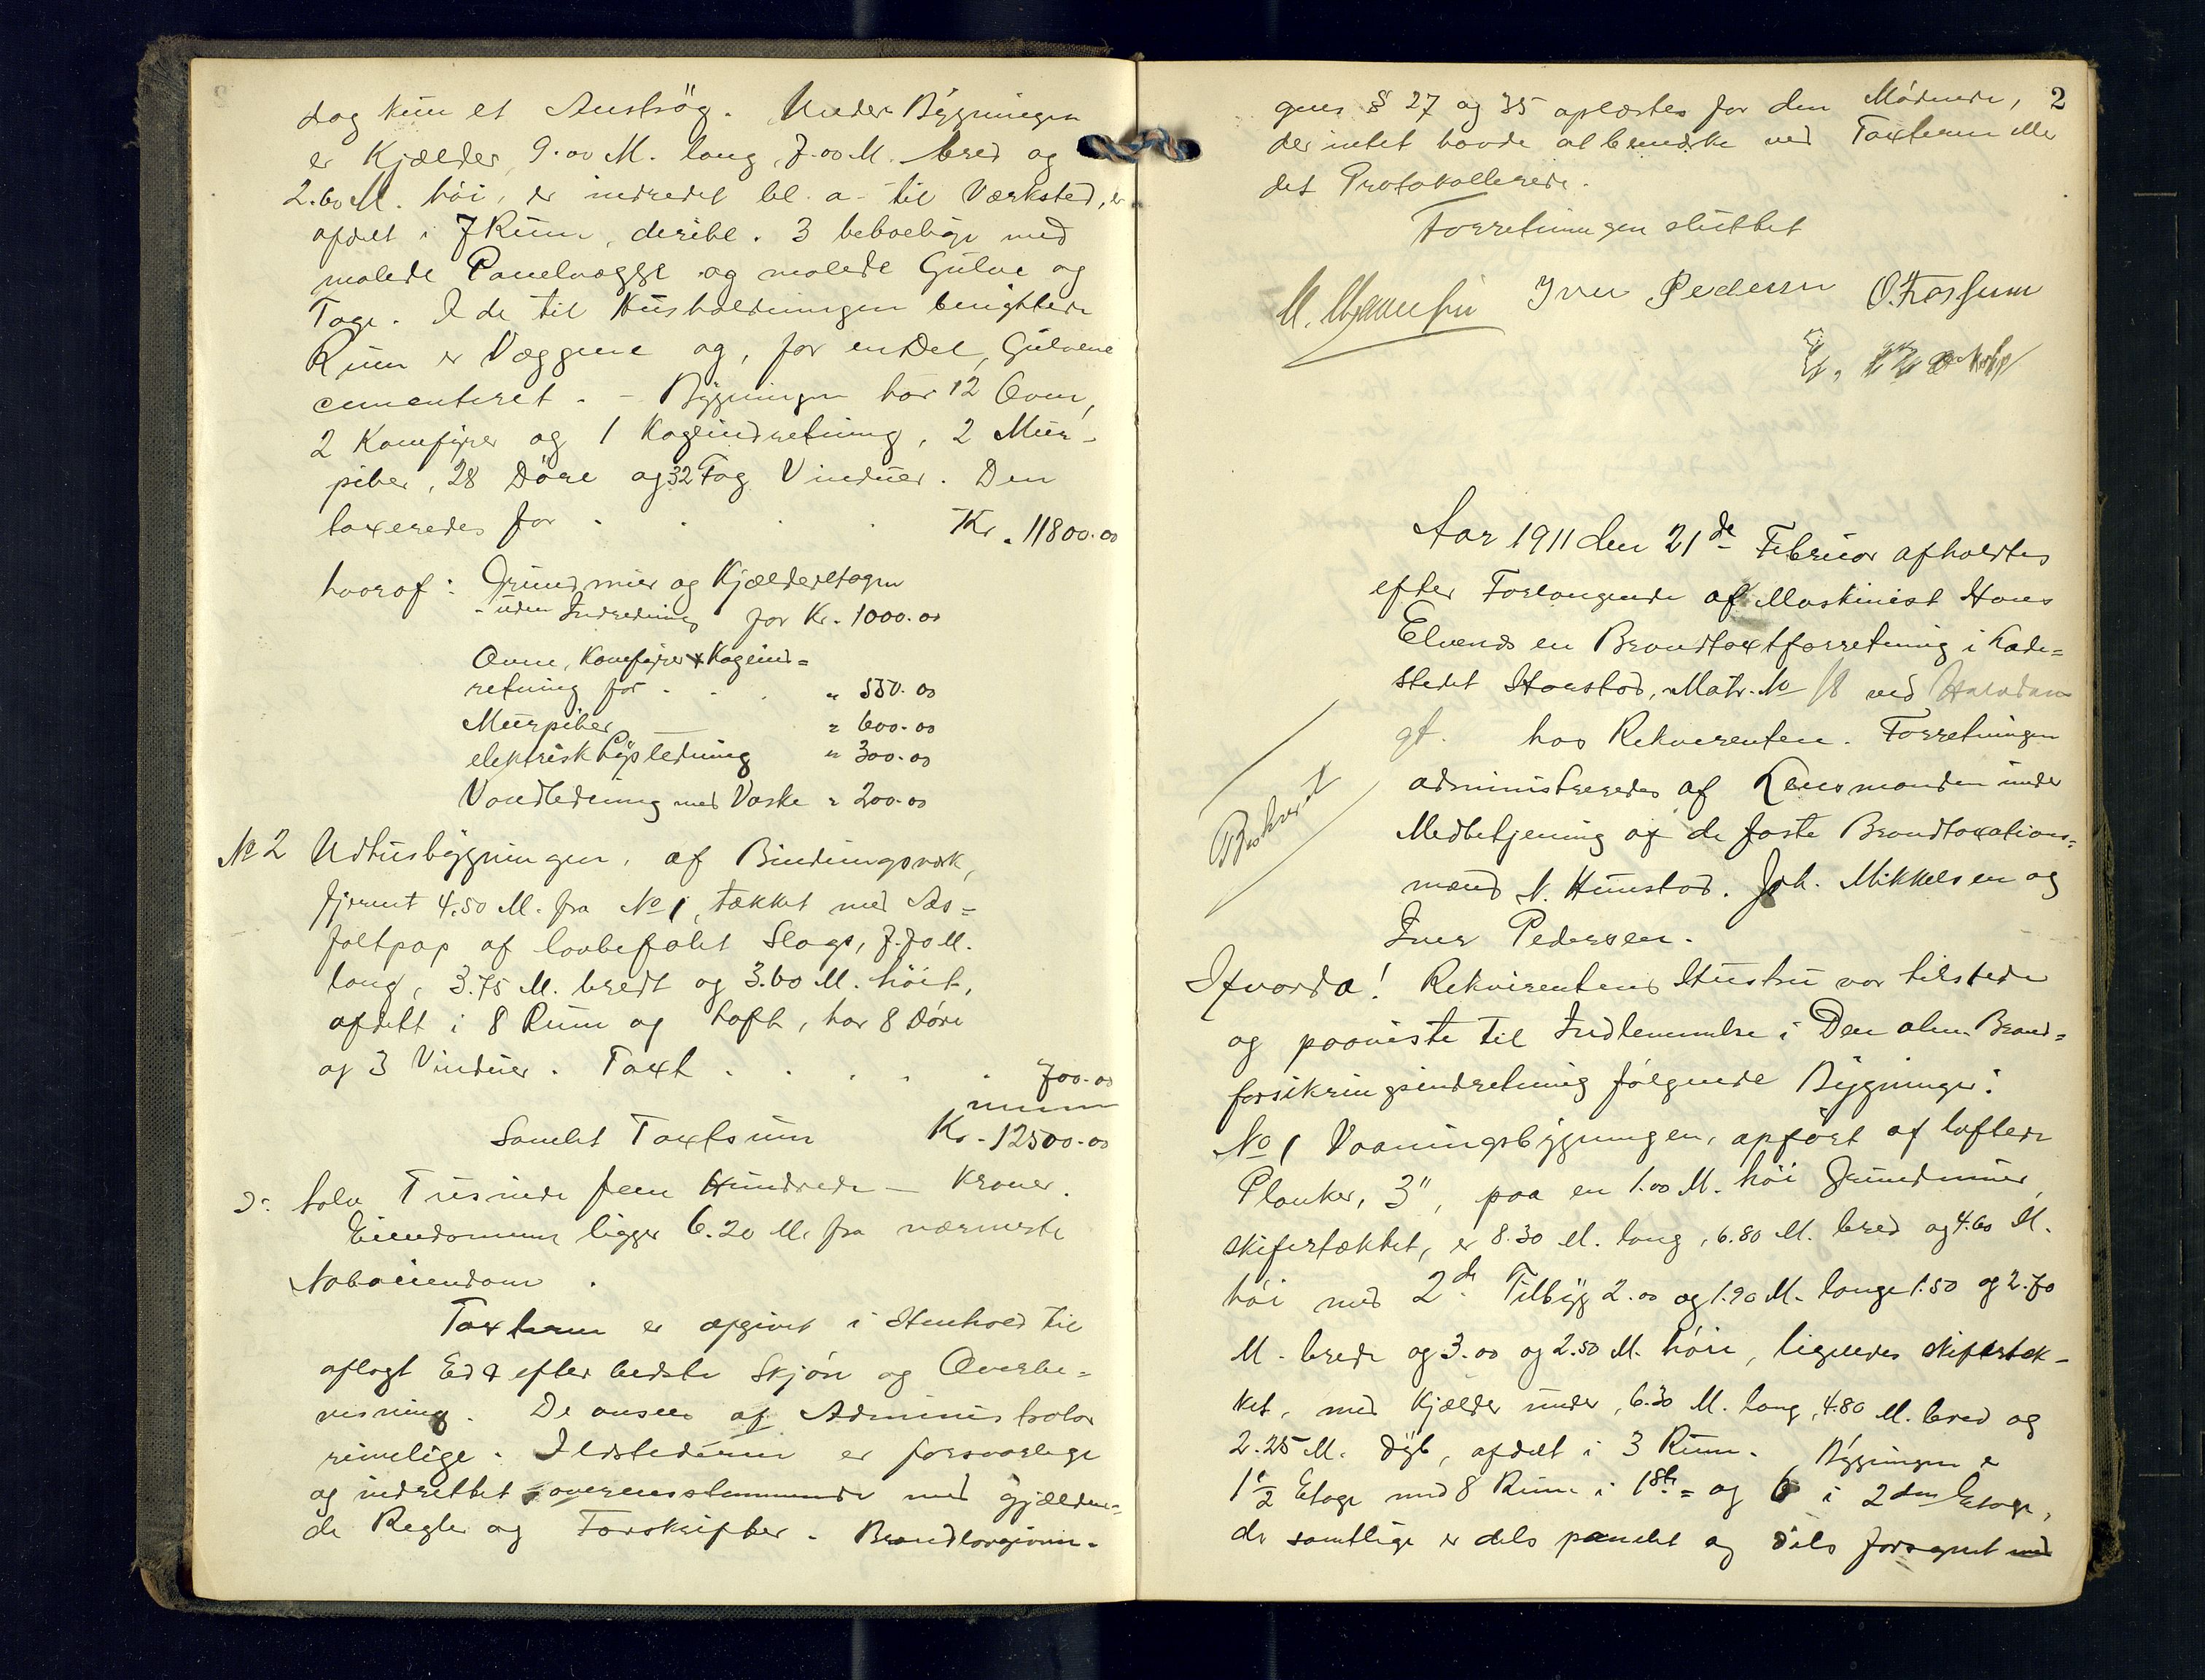 dog kun et Anstrøg. Under Bygningen
er Kjælder, 9.00 M. lang, 7.00 M. bred og
2.60 M. høi, er indredet bl. a. til Værksted, er
afdelt i 7 Rum, deribl. 3 beboelige med
malede Panelvægge og malede Gulve og
Tage. I de til Husholdningen benyttede
Rum er Væggene og, for en Del, Gulvene
cementeret. - Bygningen har 12 Ovne,
2 Komfyrer og 1 Kogeindretning, 2 Mur-
piber, 28 Døre og 32 Fag Vinduer. Den
taxeredes for . . . . Kr. 11800.00
hvoraf: Grundmur og Kjælderetagen
- uden Indredning for Kr. 1000.00
Ovne, Komfyrer & Kogeind=
retning for . . . " 550.00
Murpiber " 600.00
elektrisk Lysledning " 300.00
Vandledning med Vaske " 200.00
No 2 Udhusbygningen, af Bindingsværk,
fjernt 4.50 M. fra No 1, tækket med As=
faltpap af lovbefalet Slags, 7.70 M.
lang, 3.75 M. bredt og 3.60 M. høit,
afdelt i 8 Rum og Loft, har 8 Døre
og 3 Vinduer. Taxt . . . . . 700.00
Samlet Taxtsum Kr. 12500.00
ɔ: tolv Tusinde fem Hundrede - Kroner.
Eiendommen ligger 6.20 M. fra nærmeste
Naboeiendom.
Taxterne er afgivet i Henhold til
aflagt Ed & efter bedste Skjøn og Overbe=
visning. De ansees af Administrator
rimelige. Ildstederne er forsvarlige
og indrettet overensstemmende med gjælden=
de Regler og Forskrifter. Brandlovgivnin-
2
gens § 27 og 35 oplæstes for den Mødende,
der intet havde at bemærke ved Taxterne eller
det Protokollerede.
Forretningen sluttet
Iver Pedersen O. Fossum
Aar 1911 den 21de Februar afholdtes
efter Forlangende af Maskinist Hans
Elvenes en Brandtaxtforretning i Lade=
stedet Harstad, Matr. No 18 ved Halvdans
gt. hos Rekvirenten. Forretningen
administreredes af Lensmanden under
Medbetjening af de faste Brandtaxations=
mænd N. Hunstad, Joh. Mikkelsen og
Iver Pedersen.
Beskrevet
Itvarda! Rekvirentens Hustru var tilstede
og paaviste til Indlemmelse i Den alm. Brand=
forsikringsindretning følgende Bygninger:
No 1 Vaaningsbygningen, opført af loftede
Planker, 3", paa en 1.00 M. høi Grundmur,
skifertækket, er 8.30 M. lang, 6.80 M. bred og 4.60 M.
høi med 2de Tilbyg 2.00 og 1.90 M. lange 1.50 og 2.70
M. brede og 3.00 og 2.50 M. høie, ligeledes skifertæk-
ket, med Kjælder under, 6.30 M. lang, 4.80 M. bred og
2.25 M. dyb, afdelt i 3 Rum. Bygningen er
1 1/2 Etage med 8 Rum i 1ste= og 6 i 2den Etage,
de samtlige er dels panelet og dels forsynet med